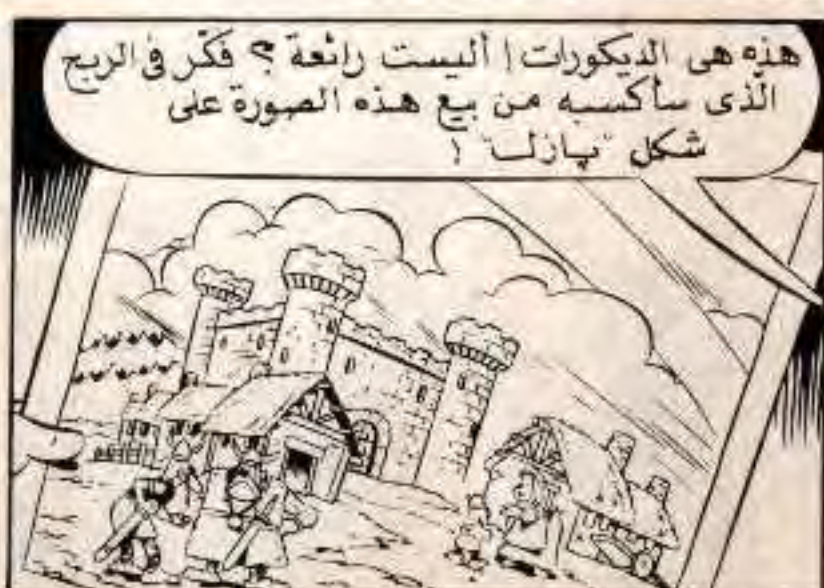 هذه هى الديكورات! أليست رائعة؟ فكّر فى الربح
الّذى سأكسبه من بيع هذه الصورة على
شكل "پازل"!